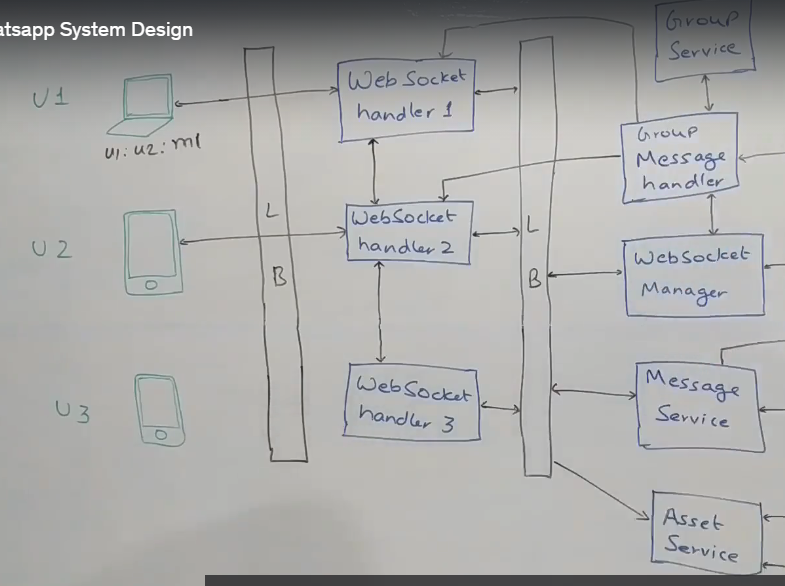 atsapp System Design
U1
u1: u2: m1
U2
U3
L
B
WebSocket
handler 1
WebSocket
handler 2
WebSocket
handler 3
L
B
Group
Service
Group
Message
handler
WebSocket
Manager
Message
Service
Asset
Service